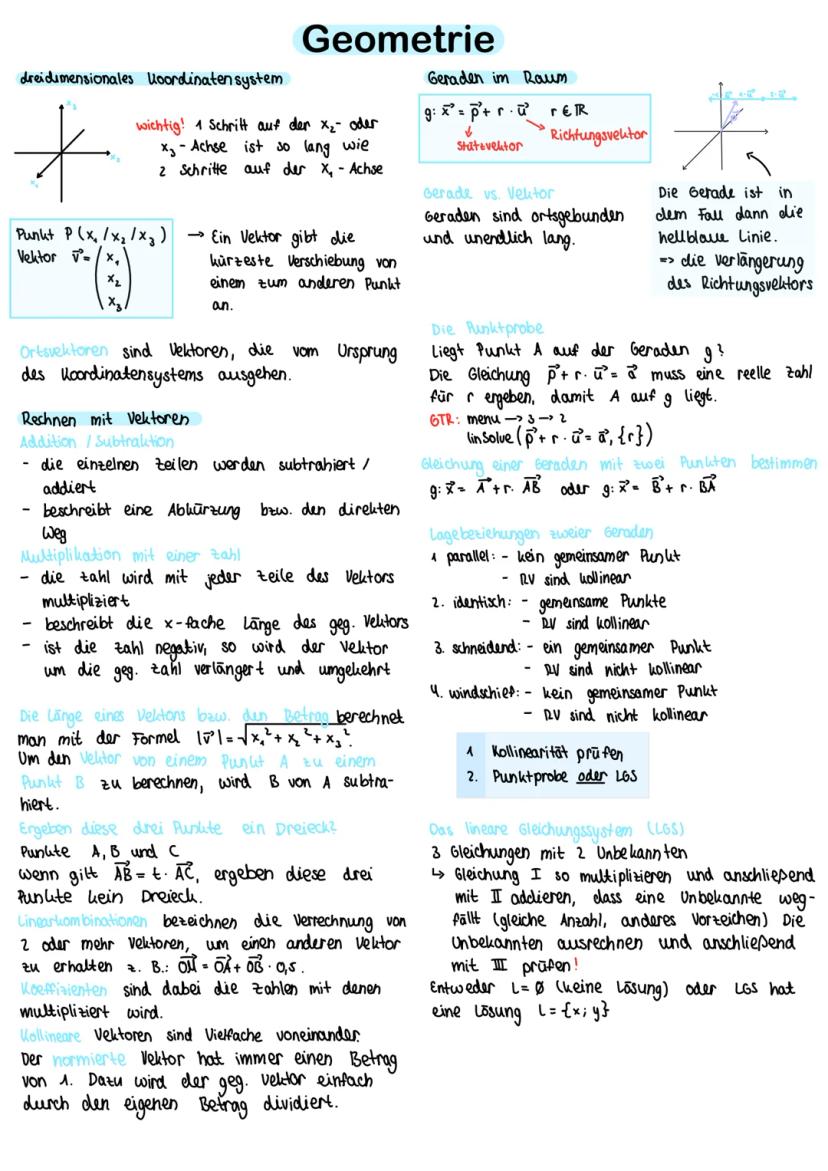 Geometrie
dreidimensionales Koordinatensystem
x₃
x₂
x₁
wichtig! 1 Schritt auf der x₂- oder
x₃-Achse ist so lang wie
2 Schritte auf der x₁-Achse
Punkt P (x₁/x₂/x₃)
Vektor v⃗ = (x₁
x₂
x₃)
→ Ein Vektor gibt die
kürzeste Verschiebung von
einem zum anderen Punkt
an.
Ortsvektoren sind Vektoren, die vom Ursprung
des Koordinatensystems ausgehen.
Rechnen mit Vektoren
Addition / Subtraktion
- die einzelnen Zeilen werden subtrahiert /
addiert
- beschreibt eine Abkürzung bzw. den direkten
Weg
Multiplikation mit einer Zahl
- die Zahl wird mit jeder Zeile des Vektors
multipliziert
- beschreibt die x-fache Länge des geg. Vektors
- ist die Zahl negativ, so wird der Vektor
um die geg. Zahl verlängert und umgekehrt
Die Länge eines Vektors bzw. den Betrag berechnet
man mit der Formel |v⃗| = √x₁² + x₂² + x₃².
Um den Vektor von einem Punkt A zu einem
Punkt B zu berechnen, wird B von A subtra-
hiert.
Ergeben diese drei Punkte ein Dreieck?
Punkte A, B und C
Wenn gilt AB⃗ = t · AC⃗, ergeben diese drei
Punkte kein Dreieck.
Linearkombinationen bezeichnen die Verrechnung von
2 oder mehr Vektoren, um einen anderen Vektor
zu erhalten z. B.: OM⃗ = OA⃗ + OB⃗ · 0,5.
Koeffizienten sind dabei die Zahlen mit denen
multipliziert wird.
Kollineare Vektoren sind Vielfache voneinander.
Der normierte Vektor hat immer einen Betrag
von 1. Dazu wird der geg. Vektor einfach
durch den eigenen Betrag dividiert.
Geraden im Raum
g: x⃗ = p⃗ + r · u⃗ r ∈ ℝ
Stützvektor
Richtungsvektor
Gerade vs. Vektor
Geraden sind ortsgebunden
und unendlich lang.
Die Gerade ist in
dem Fall dann die
hellblaue Linie.
=> die Verlängerung
des Richtungsvektors
Die Punktprobe
Liegt Punkt A auf der Geraden g?
Die Gleichung p⃗ + r · u⃗ = a⃗ muss eine reelle Zahl
für r ergeben, damit A auf g liegt.
GTR: menu → 3 → 2
linSolve (p⃗ + r · u⃗ = a⃗, {r})
Gleichung einer Geraden mit zwei Punkten bestimmen
g: x⃗ = A⃗ + r · AB⃗ oder g: x⃗ = B⃗ + r · BA⃗
Lagebeziehungen zweier Geraden
1 parallel: - kein gemeinsamer Punkt
- RV sind kollinear
2. identisch: - gemeinsame Punkte
- RV sind kollinear
3. schneidend: - ein gemeinsamer Punkt
- RV sind nicht kollinear
4. windschief: - kein gemeinsamer Punkt
- RV sind nicht kollinear
1 Kollinearität prüfen
2. Punktprobe oder LGS
Das lineare Gleichungssystem (LGS)
3 Gleichungen mit 2 Unbekannten
↳ Gleichung I so multiplizieren und anschließend
mit II addieren, dass eine Unbekannte weg-
fällt (gleiche Anzahl, anderes Vorzeichen) Die
Unbekannten ausrechnen und anschließend
mit III prüfen!
Entweder L = ∅ (keine Lösung) oder LGS hat
eine Lösung L = {x; y}